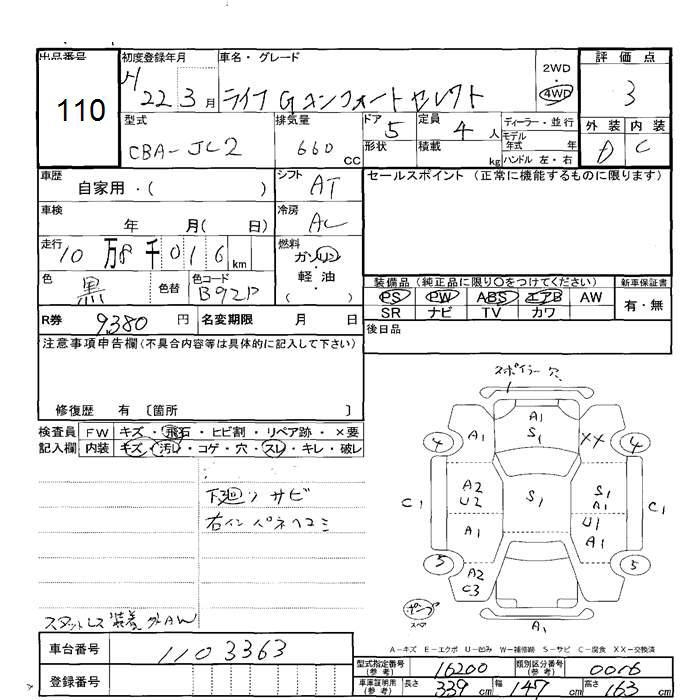 出品番号 初度登録年月 車名・グレード 2WD 評価点
110 H 22 3月 ライフ G コンフォートセレクト 4WD 3
型式 排気量 ドア 定員 ディーラー・並行 外装 内装
CBA-JC2 660 CC 5 4人 モデル年式 年 D C
形状 積載 kg ハンドル 左・右
車歴 自家用・( ) シフト AT セールスポイント(正常に機能するものに限ります)
車検 年 月( 日) 冷房 AC
走行 10万8千016km 燃料 ガソリン・軽油・( )
色 黒 色替 色コード B92P
装備品(純正品に限り○をつけてください) 新車保証書
PS PW ABS エアB AW 有・無
SR ナビ TV カワ
R券 9380円 名変期限 月 日 後日品
注意事項申告欄(不具合内容等は具体的に記入して下さい)
修復歴 有 〔箇所 〕
検査員 FW キズ・飛石・ヒビ割・リペア跡・×要
記入欄 内装 キズ・汚レ・コゲ・穴・スレ・キレ・破レ
下廻りサビ
右インパネヘコミ
スタットレス装着 外AW
スポイラー穴
A1
S1
A1
XX
4
4
A2
U2
S1
S1
A1
C1
C1
A1
U1
A1
5
5
A2
C3
A1
スペア
A-キズ E-エクボ U-凹み W-補修跡 S-サビ C-腐食 XX-交換済
車台番号 1103363
登録番号
型式指定番号(参考) 16200 類別区分番号(参考) 0016
車庫証明用(参考) 長さ 339cm 幅 147cm 高さ 163cm